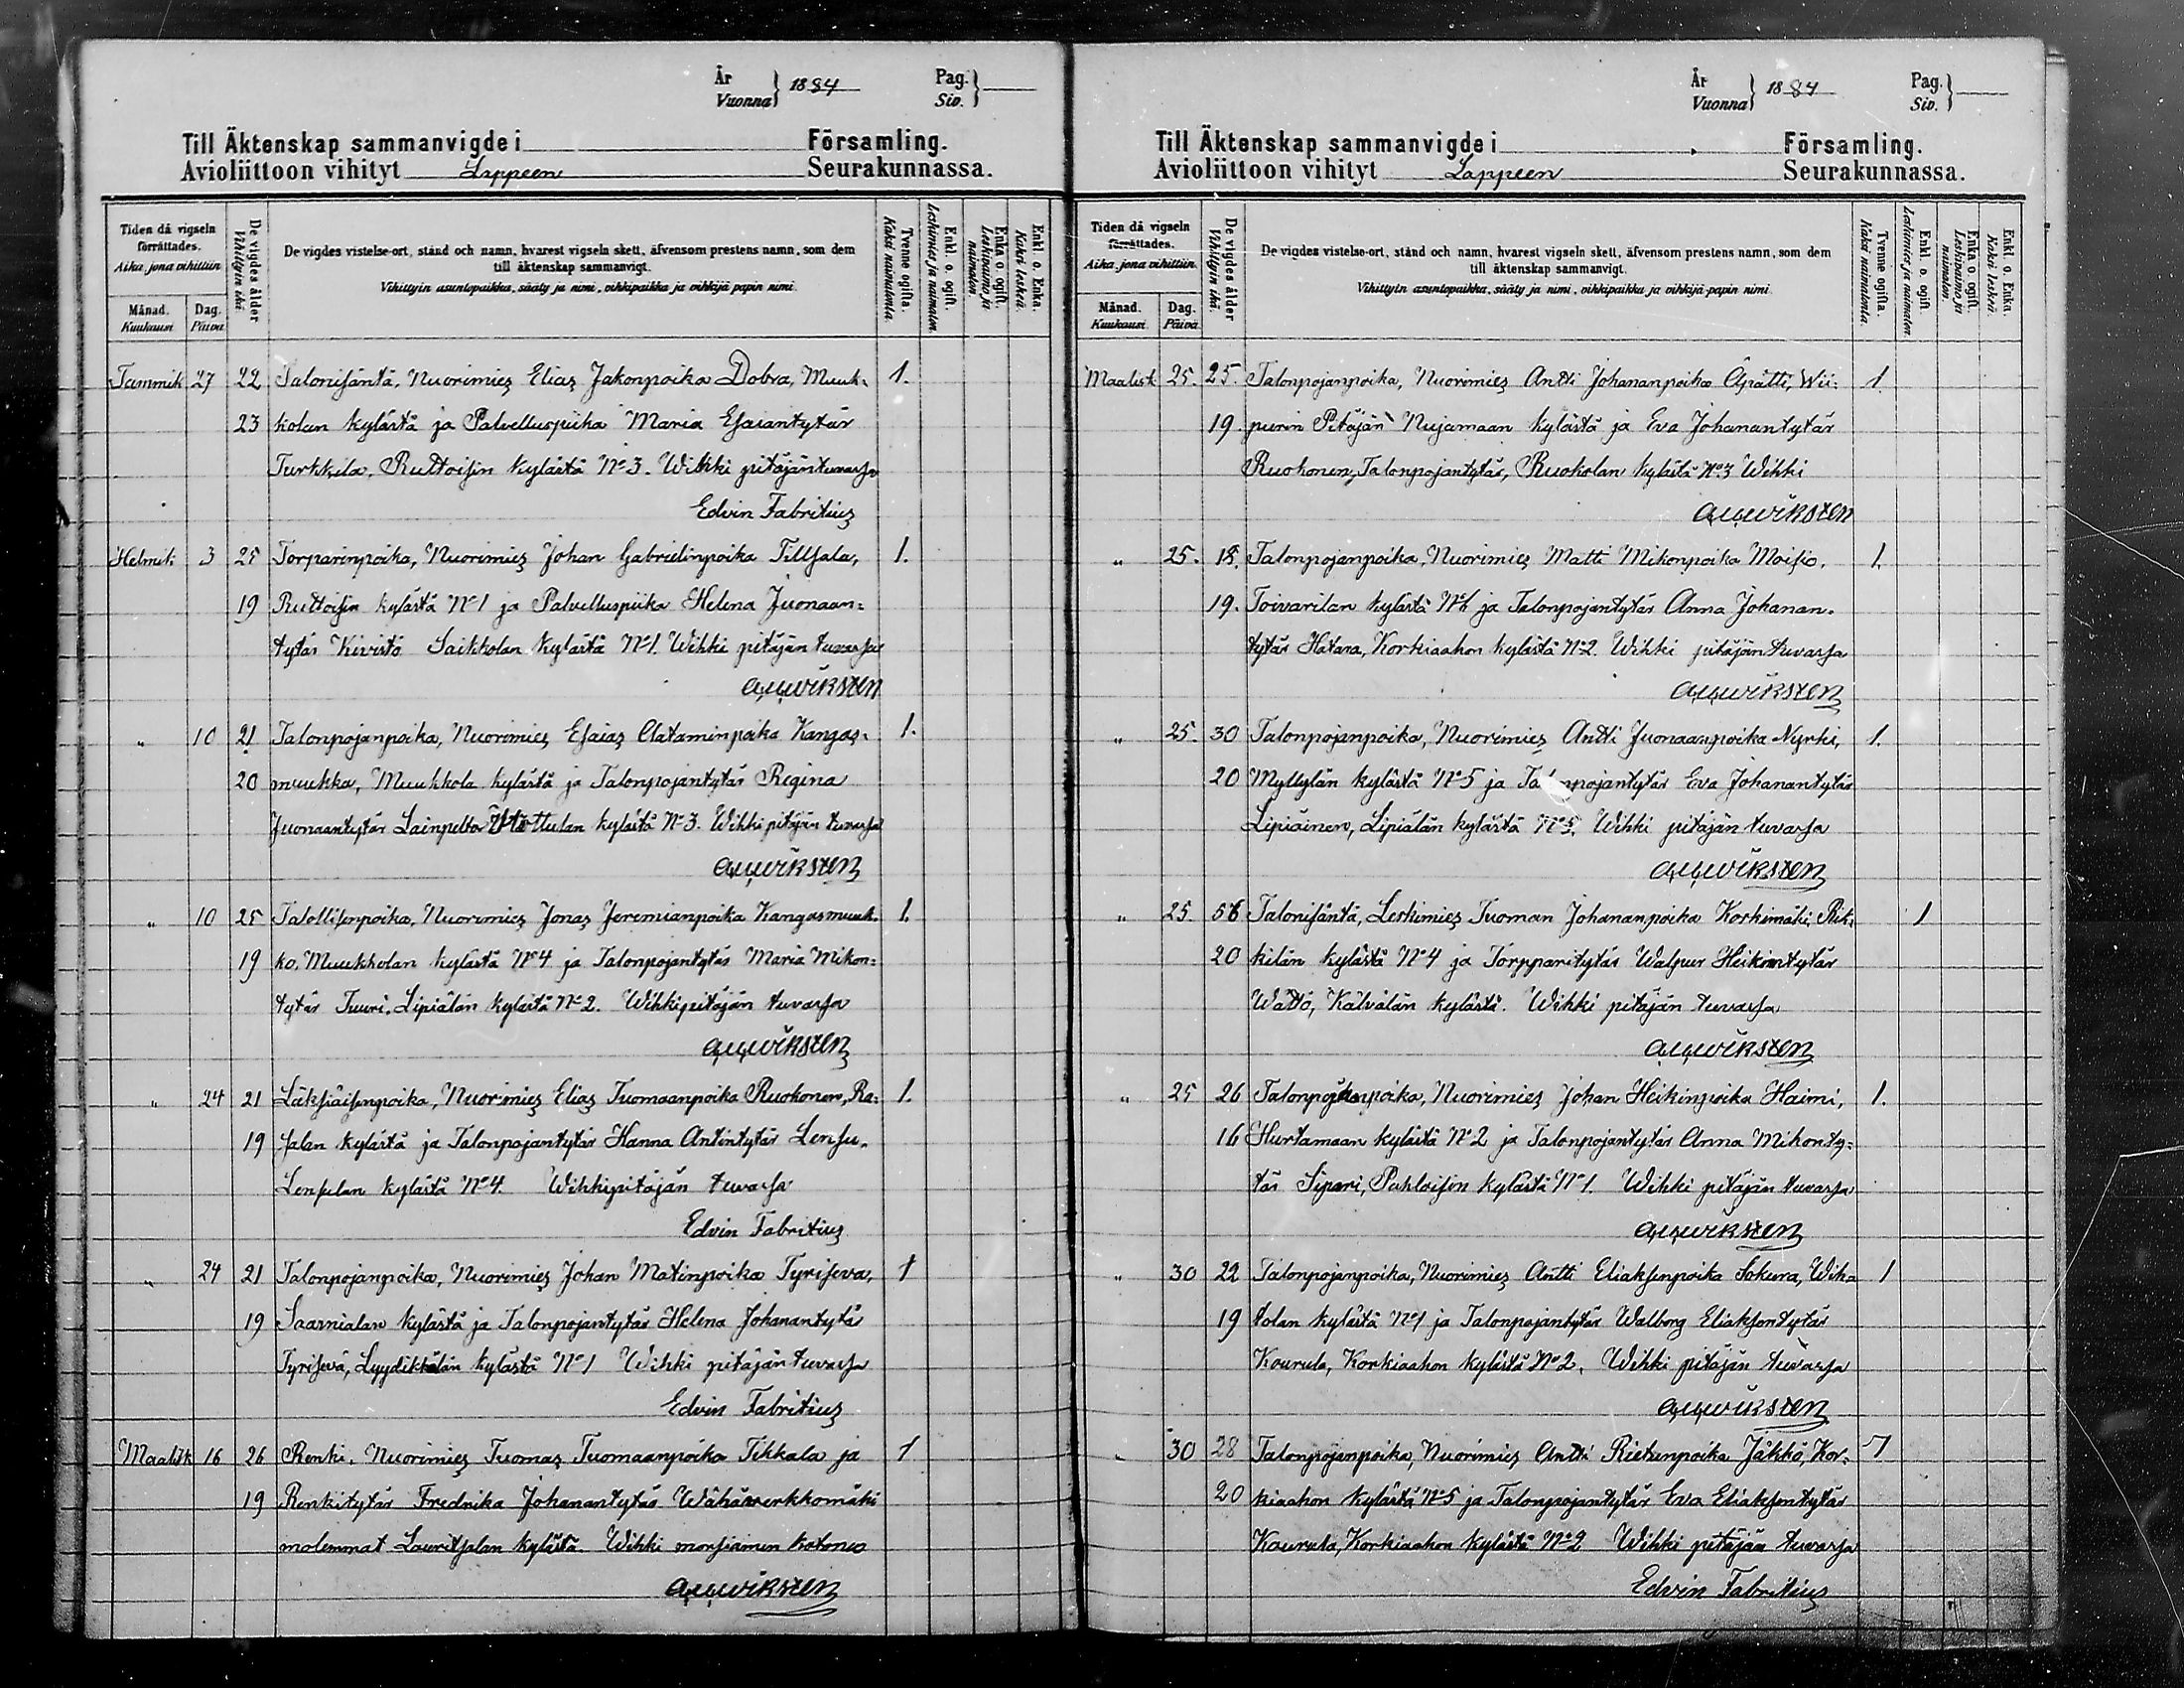 År
Vuonna } 1884 Pag.
Siv. }
Till Äktenskap sammanvigde i Församling.
Avioliittoon vihityt Lappeen Seurakunnassa.
Tiden då vigseln förrättades.
Aika, jona vihittiin
Månad.
Kuukausi
Dag.
Päivä
De vigdes ålder
Vihittyin ikä
De vigdes vistelse-ort, stånd och namn, hvarest vigseln skett, äfvensom prestens namn, som dem
till äktenskap sammanvigt.
Vihittyin asuntopaikka, sääty ja nimi, vihkipaikka ja vihkijä papin nimi
Tvenne ogifta.
Kaksi naimatonta.
Enkl. o. ogift.
Leskimies ja naimaton.
Enka o. ogift.
Leskivaimo ja naimaton.
Enkl. o. Enka.
Kaksi leskeä.
Tammik 27 22 Talonisäntä, Nuorimies Elias Jakonpoika Dobra, Muuk- 1.
23 kolan kylästä ja Palvelluspiika Maria Esaiantytär
Turkkila, Ruttoisin kylästä No 3. Wihki pitäjäntuvassa
Edvin Fabritius
Helmik 3 25 Torparinpoika, Nuorimies Johan Gabrielinpoika Tillsala, 1.
19 Ruttoisin kylästä No 1 ja Palvelluspiika Helena Juonaan=
tytär Kivistö Saikkolan kylästä No 1. Wihki pitäjän tuvassa
Wiksten
" 10 21 Talonpojanpoika, Nuorimies Esaias Aataminpoika Kangas- 1.
20 muukka, Muukkola kylästä ja Talonpojantytär Regina
Juonaantytär Lainpelto Hottulan kylästä No 3. Wihki pitäjän tuvassa
Wiksten
" 10 25 Talollisenpoika, Nuorimies Jonas Jeremianpoika Kangasmuuk- 1.
19 ko, Muukkolan kylästä No 4 ja Talonpojantytär Maria Mikon=
tytär Tuuri, Lipiälän kylästä No 2. Wihki pitäjän tuvassa
Wiksten
" 24 21 Läksiäisenpoika, Nuorimies Elias Tuomaanpoika Ruohonen, Ra= 1.
19 salan kylästä ja Talonpojantytär Hanna Antintytär Lensu,
Lensulan kylästä No 4. Wihki pitäjän tuvassa
Edvin Fabritius
" 24 21 Talonpojanpoika, Nuorimies Johan Matinpoika Tyriseva, 1
19 Saarnialan kylästä ja Talonpojantytär Helena Johanantytär
Tyrisevä, Lyydikkälän kylästä No 1 Wihki pitäjän tuvassa
Edvin Fabritius
Maalisk 16 26 Renki, Nuorimies Tuomas Tuomaanpoika Tikkala ja 1
19 Renkitytär Fredrika Johanantytär Wähäverkkomäki
molemmat Lauritsalan kylästä. Wihki morsiamen kotona
Wiksten
År
Vuonna } 1884 Pag.
Siv. }
Till Äktenskap sammanvigde i Församling.
Avioliittoon vihityt Lappeen Seurakunnassa.
Tiden då vigseln förrättades.
Aika, jona vihittiin
Månad.
Kuukausi
Dag.
Päivä
De vigdes ålder
Vihittyin ikä
De vigdes vistelse-ort, stånd och namn, hvarest vigseln skett, äfvensom prestens namn, som dem
till äktenskap sammanvigt.
Vihittyin asuntopaikka, sääty ja nimi, vihkipaikka ja vihkijä papin nimi
Tvenne ogifta.
Kaksi naimatonta.
Enkl. o. ogift.
Leskimies ja naimaton.
Enka o. ogift.
Leskivaimo ja naimaton.
Enkl. o. Enka.
Kaksi leskeä.
Maalisk 25. 25. Talonpojanpoika, Nuorimies Antti Johananpoika Apätti, Wii- 1.
19. purin Pitäjän Nujamaan kylästä ja Eva Johanantytär
Ruohonen, Talonpojantytär, Ruokolan kylästä No 3 Wihki
Wiksten
" 25. 18. Talonpojanpoika, Nuorimies Matti Mikonpoika Moisio, 1.
19. Toivarilan kylästä No 1 ja Talonpojantytär Anna Johanan-
tytär Hatara, Korkiaahon kylästä No 2. Wihki pitäjän tuvassa
Wiksten
" 25. 30 Talonpojanpoika, Nuorimies Antti Juonaanpoika Nyrki, 1.
20 Myllylän kylästä No 5 ja Talonpojantytär Eva Johanantytär
Lipiäinen, Lipiälän kylästä No 5. Wihki pitäjän tuvassa
Wiksten
" 25. 56 Talonisäntä, Leskimies Tuoman Johananpoika Korkimäki, Rik- 1
20 kilän kylästä No 4 ja Torpparitytär Walpur Heikintytär
Wättö, Kälvälän kylästä. Wihki pitäjän tuvassa
Wiksten
" 25 26 Talonpojanpoika, Nuorimies Johan Heikinpoika Haimi, 1.
16 Hurtamaan kylästä No 2 ja Talonpojantytär Anna Mikonty=
tär Sipari, Pahloisin kylästä No 1. Wihki pitäjän tuvassa
Wiksten
" 30 22 Talonpojanpoika, Nuorimies Antti Eliaksenpoika Sokura, Wih= 1
19 tolan kylästä No 1 ja Talonpojantytär Walborg Eliaksentytär
Kourula, Korkiaahon kylästä No 2. Wihki pitäjän tuvassa
Wiksten
" 30 28 Talonpojanpoika, Nuorimies Antti Rietunpoika Jäkkö, Kor- 1
20 kiaahon kylästä No 5 ja Talonpojantytär Eva Eliaksentytär
Kourula, Korkiaahon kylästä No 2 Wihki pitäjän tuvassa
Edvin Fabritius